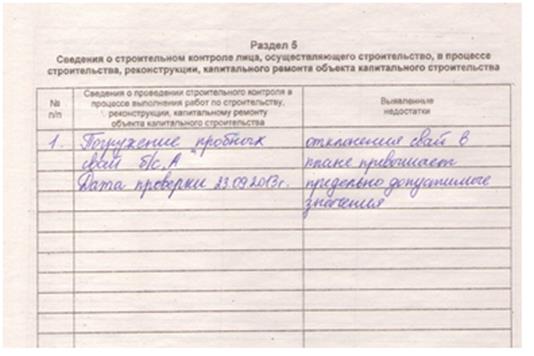 Раздел 5
Сведения о строительном контроле лица, осуществляющего строительство, в процессе
строительства, реконструкции, капитального ремонта объекта капитального строительства
№
п/п
Сведения о проведении строительного контроля в
процессе выполнения работ по строительству,
реконструкции, капитальному ремонту
объекта капитального строительства
Выявленные
недостатки
1.
Погружение пробных
свай б/с А
Дата проверки 23.09.2013г.
отклонения свай в
плане превышает
придельно допустимые
значения